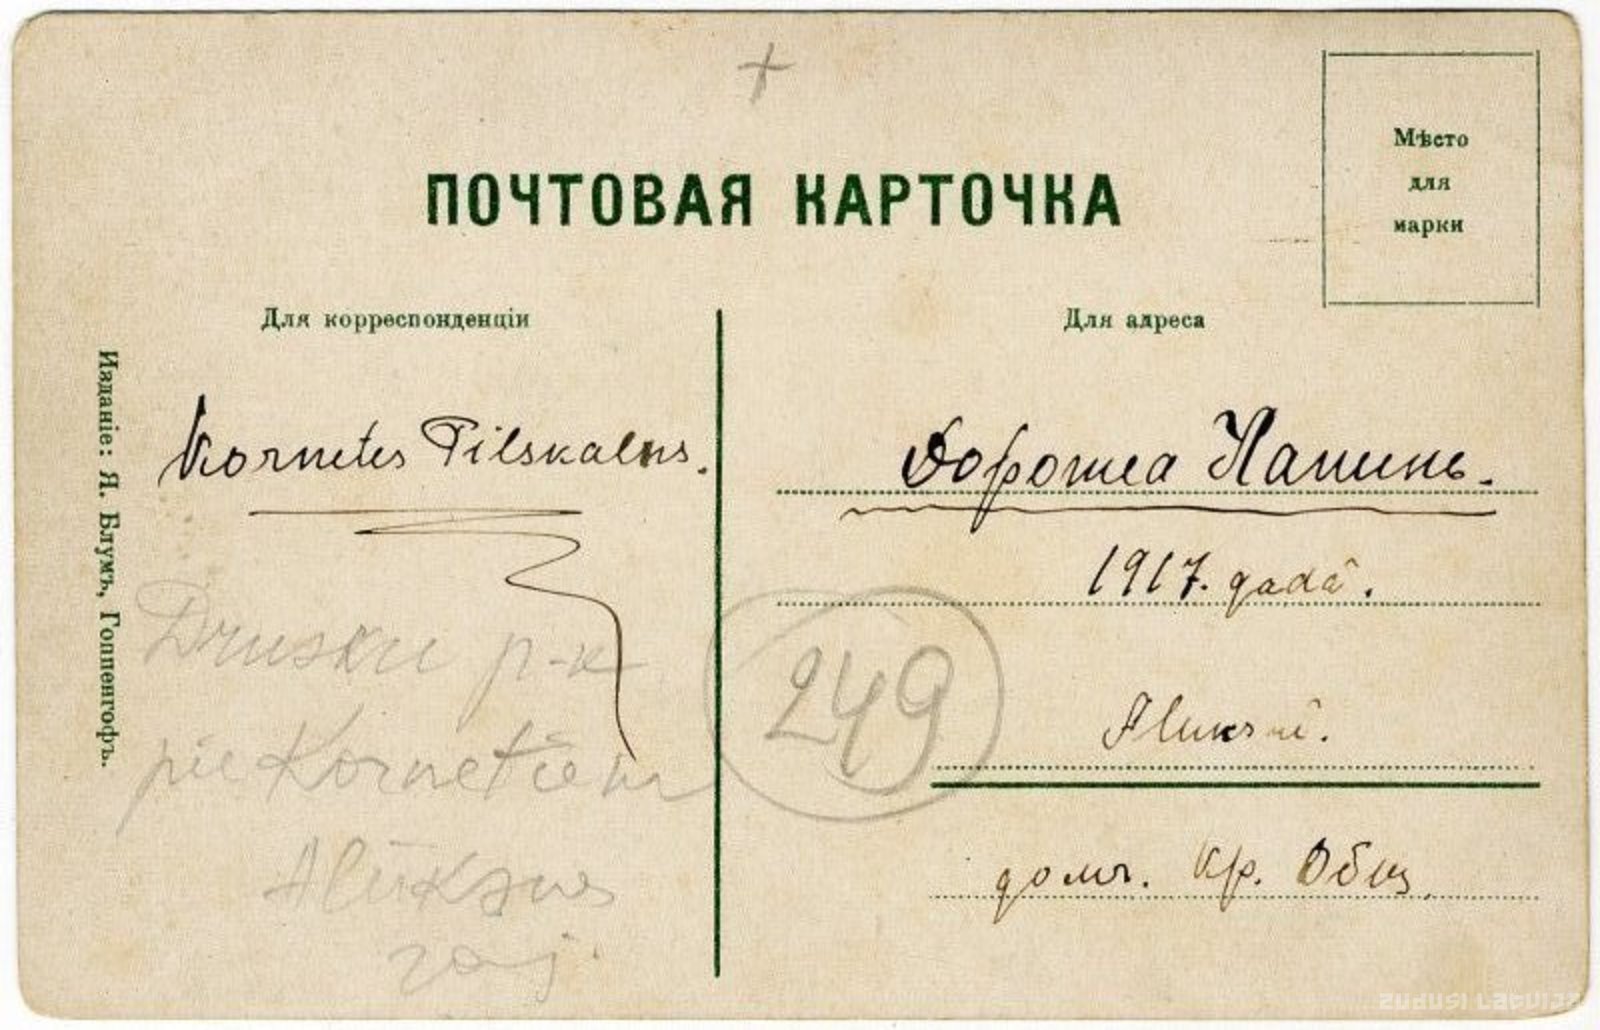 ПОЧТОВАЯ КАРТОЧКА
Мѣсто
для
марки
Для корреспонденціи
Для адреса
Изданіе: Я. Блумъ, Гоппенгофъ.
Kornetes Pilskalns.
Drusku p-k
pie Kornetiem
Alūksnes
raj.
249
Доротеа
1917. gadâ.
домъ. Кр. Общ.
zudusi Latvija